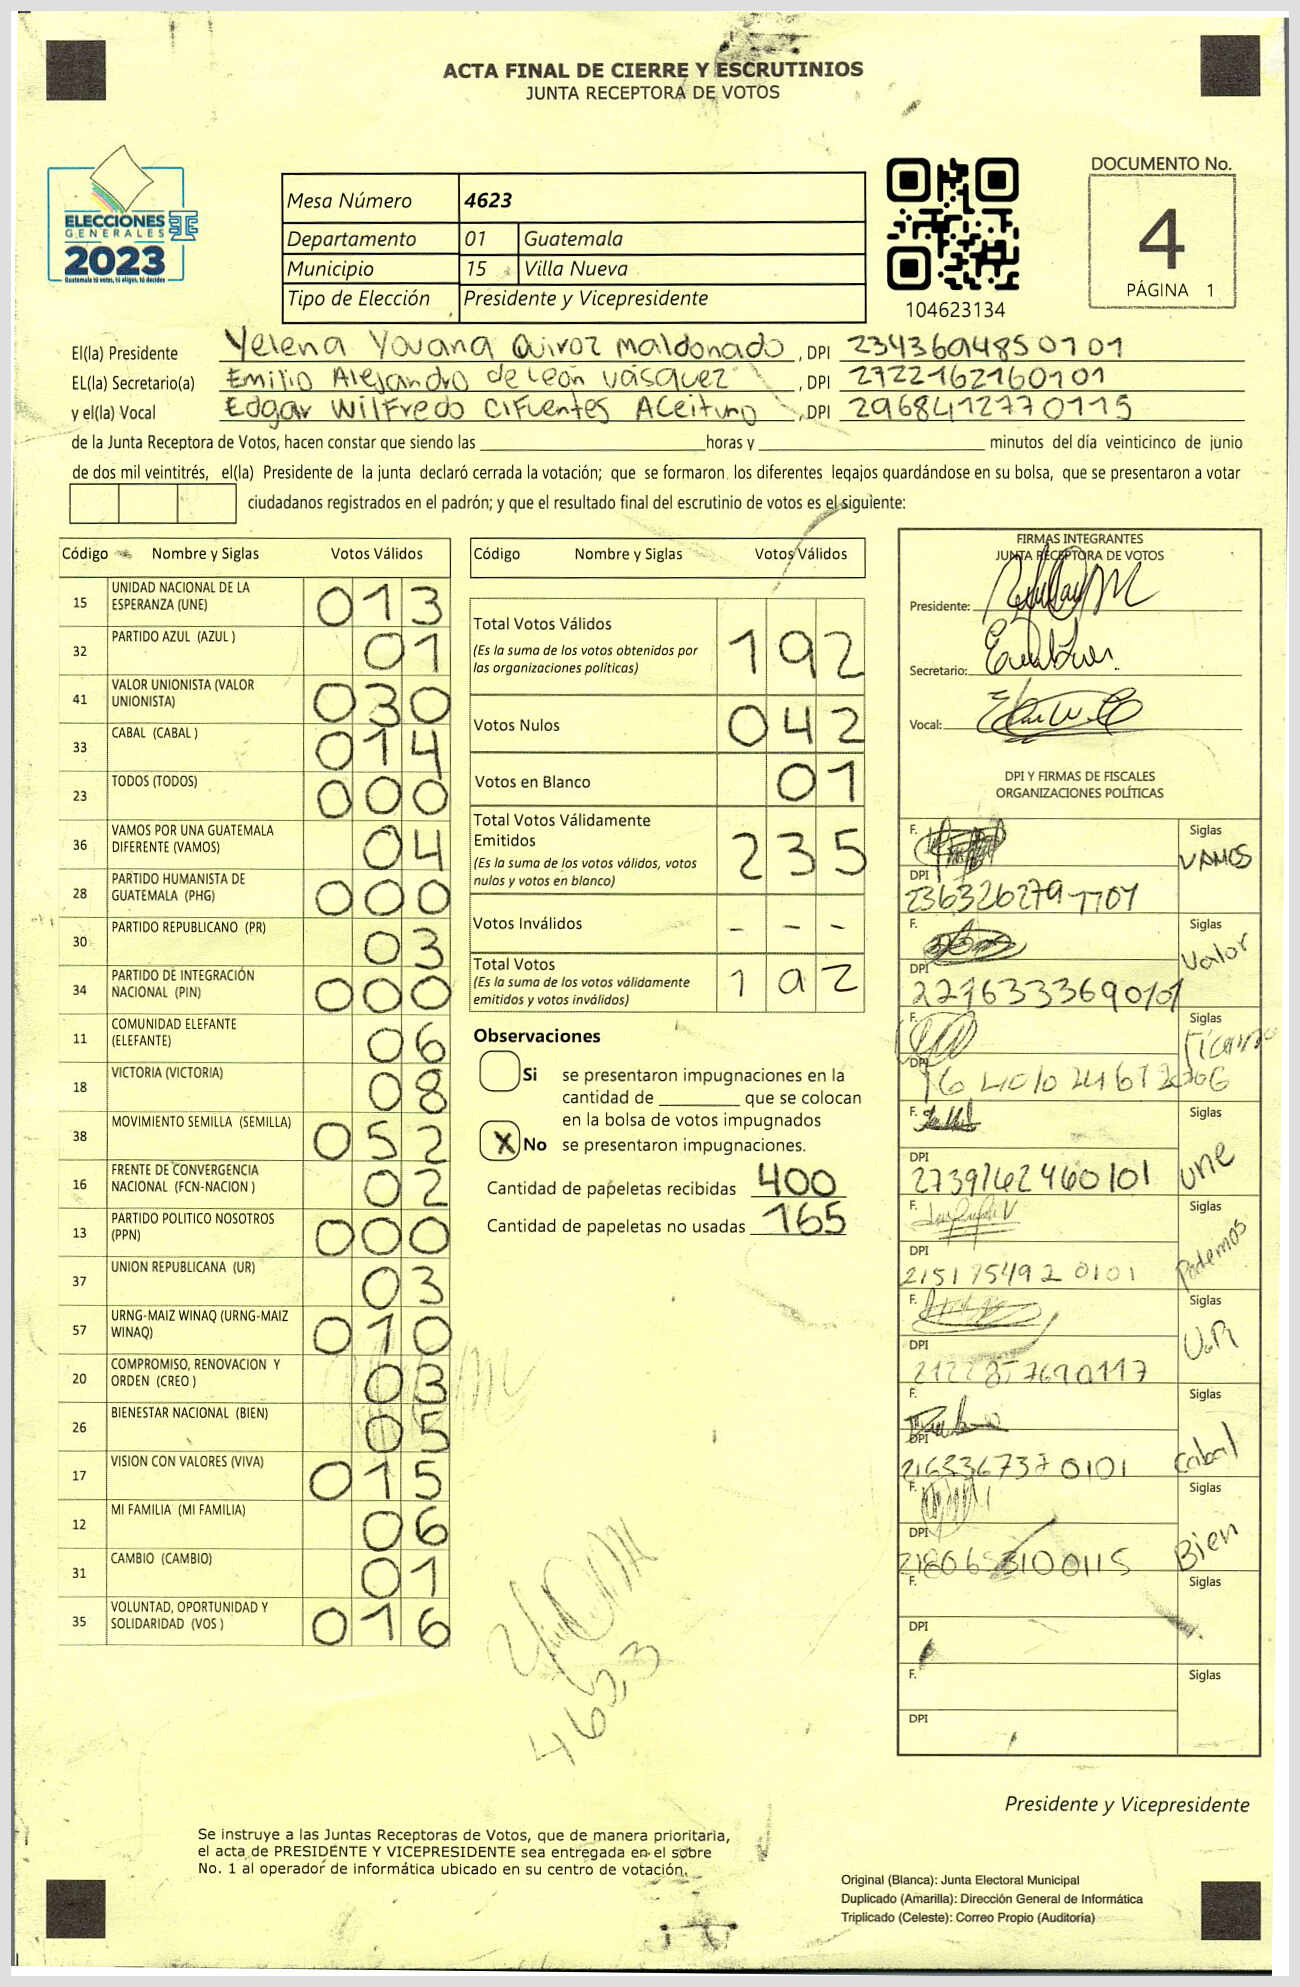 ACTA FINAL DE CIERRE Y ESCRUTINIOS
JUNTA RECEPTORA DE VOTOS
ELECCIONES
GENERALES
2023
Guatemala tú votas, tú eliges, tú decides
Mesa Número 4623
Departamento 01 Guatemala
Municipio 15 Villa Nueva
Tipo de Elección Presidente y Vicepresidente
104623134
DOCUMENTO No.
4
PÁGINA 1
El(la) Presidente Yelena Yovana Quiroz Maldonado, DPI 2343694850101
EL(la) Secretario(a) Emilio Alejandro de León Vásquez, DPI 2722162160101
y el(la) Vocal Edgar Wilfredo Cifuentes Aceituno, DPI 2968412770115
de la Junta Receptora de Votos, hacen constar que siendo las horas y minutos del día veinticinco de junio
de dos mil veintitrés, el(la) Presidente de la junta declaró cerrada la votación; que se formaron los diferentes legajos guardándose en su bolsa, que se presentaron a votar
ciudadanos registrados en el padrón; y que el resultado final del escrutinio de votos es el siguiente:
Código Nombre y Siglas Votos Válidos
15 UNIDAD NACIONAL DE LA ESPERANZA (UNE) 013
32 PARTIDO AZUL (AZUL ) 01
41 VALOR UNIONISTA (VALOR UNIONISTA) 030
33 CABAL (CABAL ) 014
23 TODOS (TODOS) 000
36 VAMOS POR UNA GUATEMALA DIFERENTE (VAMOS) 04
28 PARTIDO HUMANISTA DE GUATEMALA (PHG) 000
30 PARTIDO REPUBLICANO (PR) 03
34 PARTIDO DE INTEGRACIÓN NACIONAL (PIN) 000
11 COMUNIDAD ELEFANTE (ELEFANTE) 06
18 VICTORIA (VICTORIA) 08
38 MOVIMIENTO SEMILLA (SEMILLA) 052
16 FRENTE DE CONVERGENCIA NACIONAL (FCN-NACION ) 02
13 PARTIDO POLITICO NOSOTROS (PPN) 000
37 UNION REPUBLICANA (UR) 03
57 URNG-MAIZ WINAQ (URNG-MAIZ WINAQ) 010
20 COMPROMISO, RENOVACION Y ORDEN (CREO ) 03
26 BIENESTAR NACIONAL (BIEN) 05
17 VISION CON VALORES (VIVA) 015
12 MI FAMILIA (MI FAMILIA) 06
31 CAMBIO (CAMBIO) 01
35 VOLUNTAD, OPORTUNIDAD Y SOLIDARIDAD (VOS ) 016
Código Nombre y Siglas Votos Válidos
Total Votos Válidos 192
(Es la suma de los votos obtenidos por
las organizaciones políticas)
Votos Nulos 042
Votos en Blanco 01
Total Votos Válidamente
Emitidos 235
(Es la suma de los votos válidos, votos
nulos y votos en blanco)
Votos Inválidos - - -
Total Votos 192
(Es la suma de los votos válidamente
emitidos y votos inválidos)
Observaciones
Si se presentaron impugnaciones en la
cantidad de que se colocan
en la bolsa de votos impugnados
X No se presentaron impugnaciones.
Cantidad de papeletas recibidas 400
Cantidad de papeletas no usadas 165
4653
FIRMAS INTEGRANTES
JUNTA RECEPTORA DE VOTOS
Presidente:
Secretario:
Vocal:
DPI Y FIRMAS DE FISCALES
ORGANIZACIONES POLÍTICAS
F. Siglas
VAMOS
DPI
F. Siglas
Valor
DPI
2276333690101
F. Siglas
DPI
F. Siglas
DPI
2739162460101 une
F. Siglas
DPI
2151754920101 Podemos
F. Siglas
DPI
F. Siglas
DPI
2163367370101 Cabal
F. Siglas
DPI
2180653100115 Bien
F. Siglas
DPI
F. Siglas
DPI
Presidente y Vicepresidente
Se instruye a las Juntas Receptoras de Votos, que de manera prioritaria,
el acta de PRESIDENTE Y VICEPRESIDENTE sea entregada en el sobre
No. 1 al operador de informática ubicado en su centro de votación.
Original (Blanca): Junta Electoral Municipal
Duplicado (Amarilla): Dirección General de Informática
Triplicado (Celeste): Correo Propio (Auditoría)